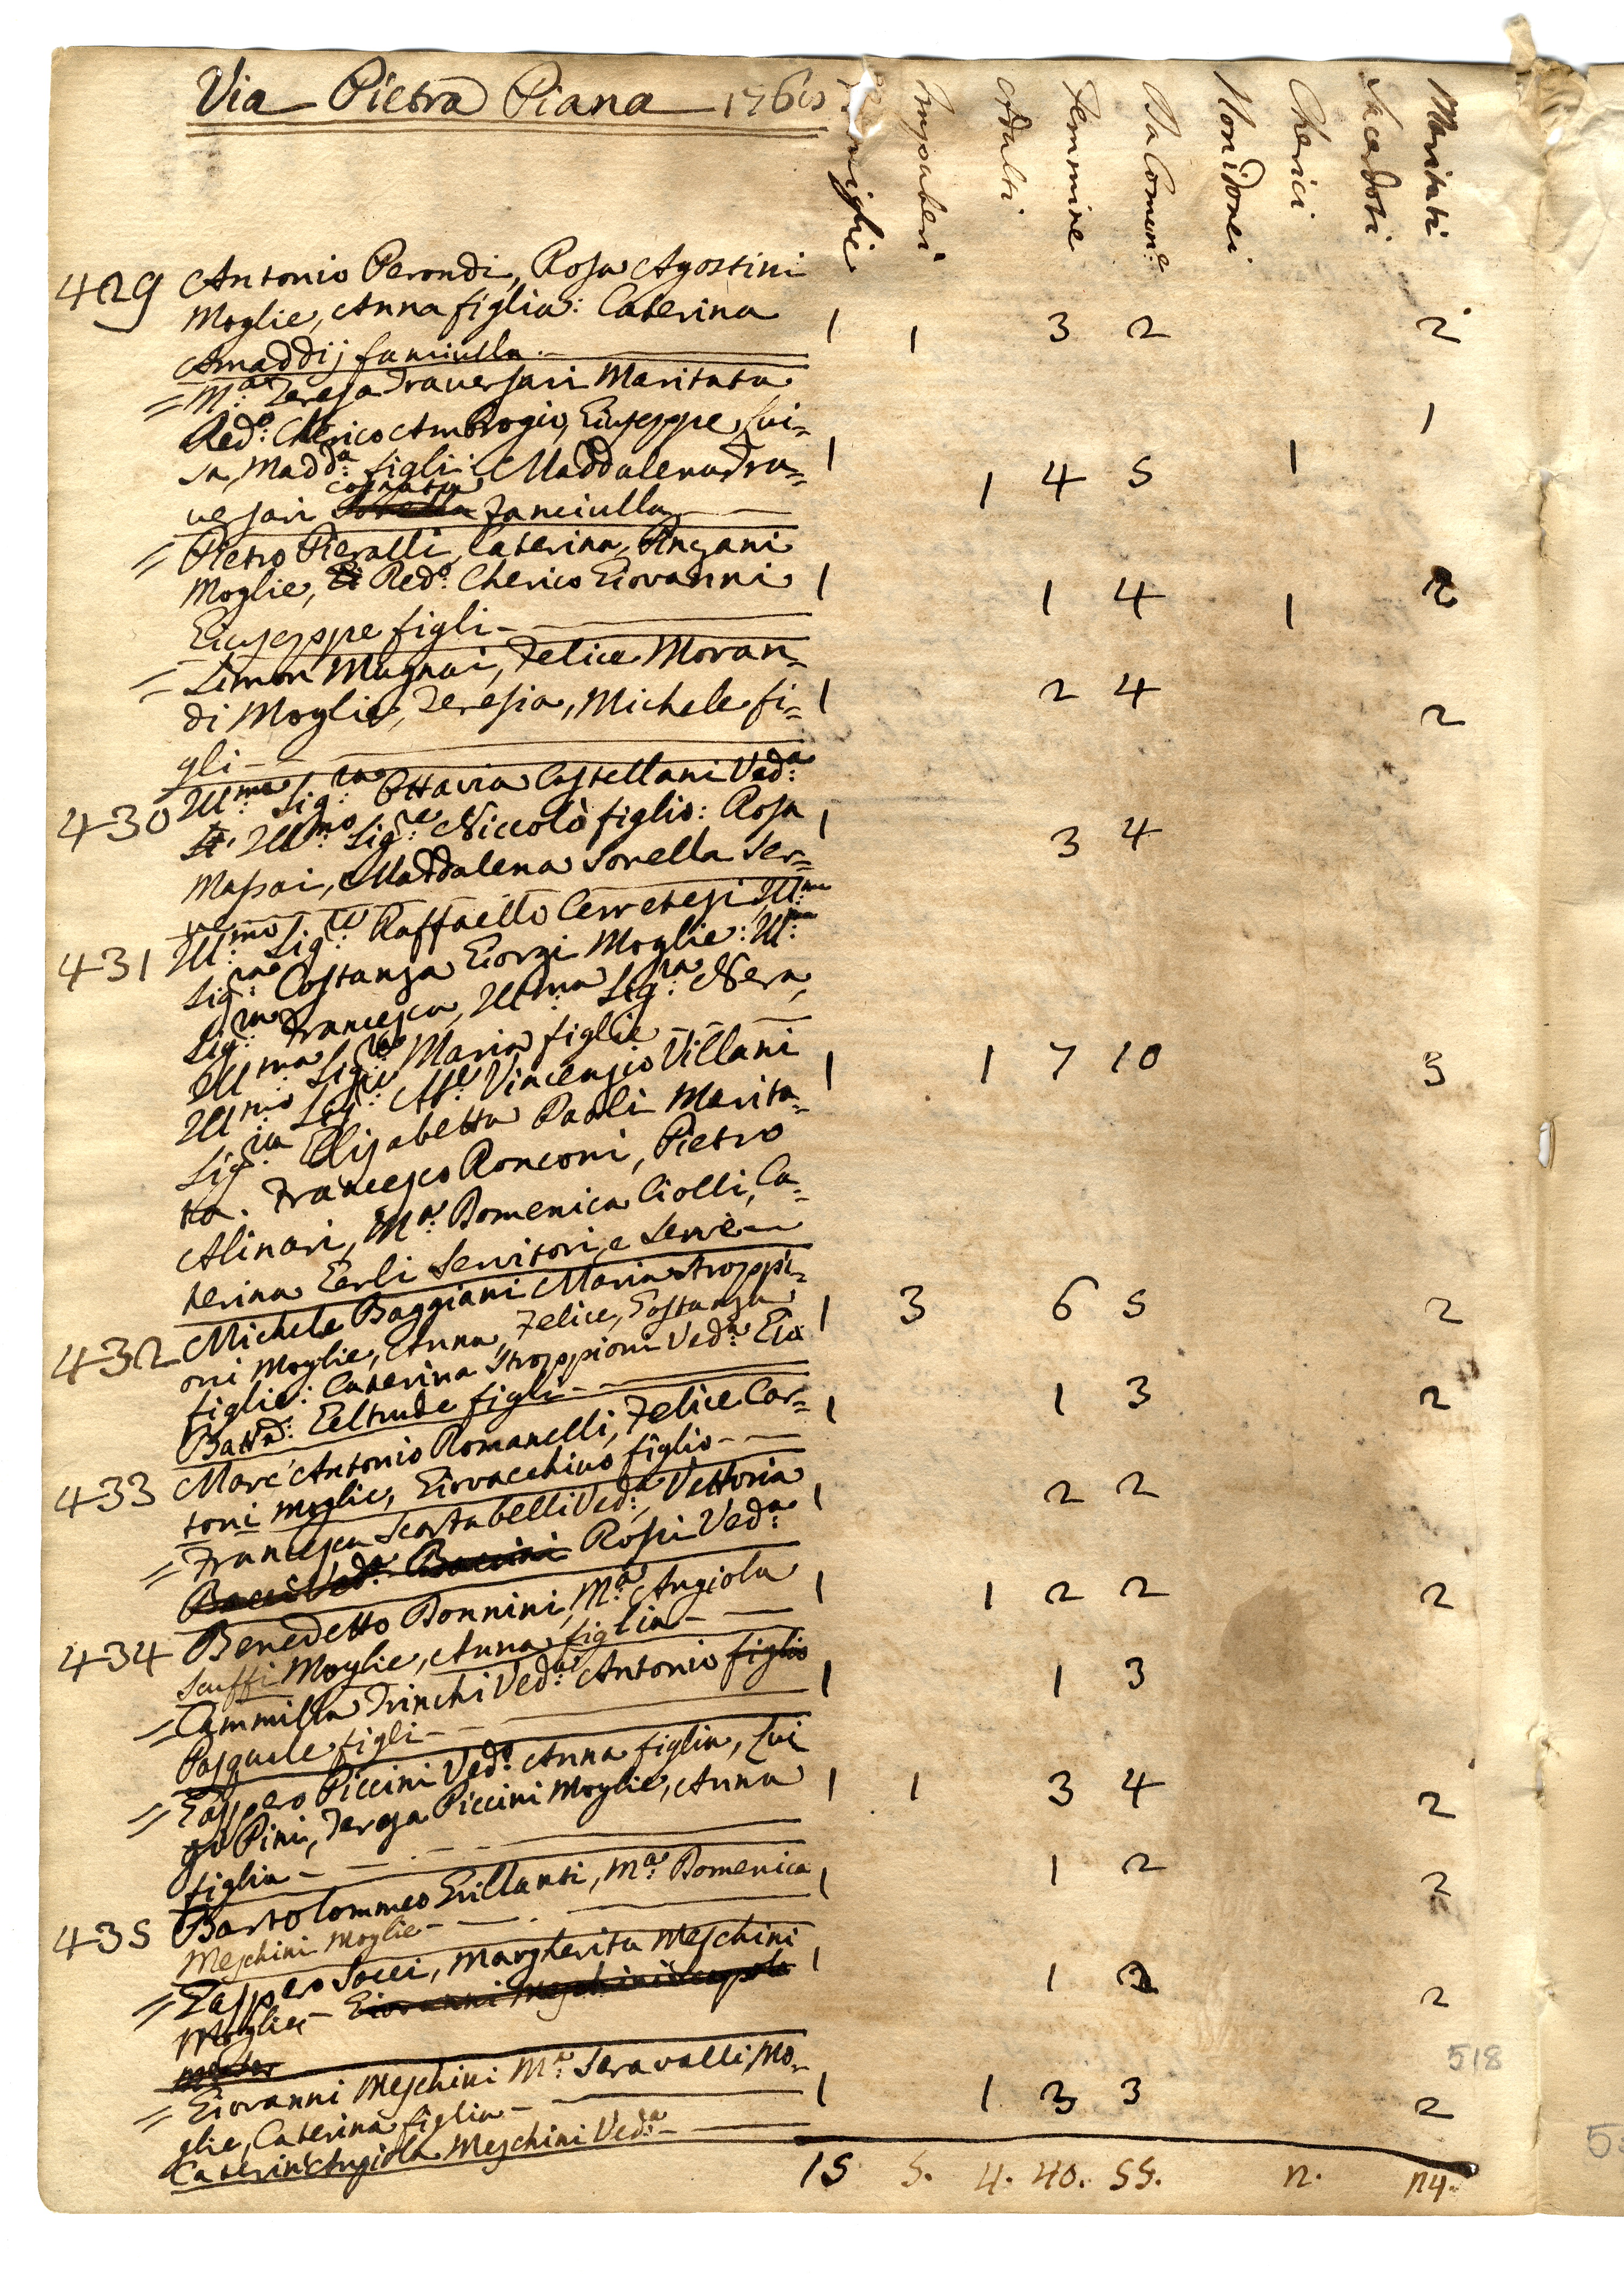 Via Pietra Piana 1766
Famiglie Impuberi Adulti Femmine Da Comun:e Non idonei Cherici Sacerdoti Maritati
429 Antonio Perondi, Rosa Agostini
Moglie, Anna figlia: Caterina 1 1 3 2 2
Amaddij fanciulla.
= M:a Teresa Traversari Maritata 1
Red:o Cherico Ambrogio, Giuseppe, Lui=
sa, Madd:a figli: Maddalena Tra= 1 1 4 5 1
cognata
versari Sorella fanciulla
= Pietro Pieralli, Caterina Pngani
Moglie, Red:o Cherico Giovanni 1 1 4 1 2
Giuseppe figli
= Simon Magnai, Felice Moran=
di Moglie, Teresia, Michele fi= 1 2 4 2
gli
430 Ill:ma Sig:ra Ottavia Castellani Ved:a
Ill:mo Sig:re Niccolò figlio: Rosa 1 3 4
Massai, Maddalena Sorella Ser=
ve
431 Ill:mo Sig:re Raffaello Cerretesi Ill:ma
Sig:ra Costanza Giorgi Moglie: Ill:ma
Sig:ra Francesca, Ill:ma Sig:ra Nera,
Ill:ma Sig:ra Maria figlie
Ill:mo Sig:re Vincenzio Villani 1 1 7 10 3
Sig:ra Elisabetta Paoli Marita=
ta. Francesco Ronconi, Pietro
Alinari, M:a Domenica Ciolli, Ca=
terina Gerli Servitori, e Serve
432 Michele Baggiani Maria Stroppi=
oni Moglie, Anna, Felice, Gostanza 1 3 6 5 2
figlie: Caterina Stroppioni Ved:a Gio
Batt:a: Geltrude figli
433 Marc'Antonio Romanelli, Felice Cor= 1 1 3 2
toni Moglie, Giovacchino figlio
= Francesca Scartabelli Ved:a, Vettoria 1 2 2
Bacci Ved:a Baccini Rossi Ved:a
434 Benedetto Bonnini, M:a Angiola 1 1 2 2 2
Scuffi Moglie, Anna figlia
= Cammilla Trinchi Ved:a Antonio figlio 1 1 3
Pasquale figli
= Gasppero Piccini Ved:o Anna figlia, Lui 1 1 3 4 2
gi Pini, Teresa Piccini Moglie, Anna
figlia
435 Bartolommeo Grillanti, M:a Domenica 1 1 2 2
Meschini Moglie
= Gasppero Socci, Margherita Meschini 1 1 2 2
Moglie Giovanni Meschini
= Giovanni Meschini M:a Seravalli Mo= 1 1 3 3 2
glie, Caterina figlia
Caterin'Angiola Meschini Ved:a
15 5. 4. 40. 55. 2. 24.
518